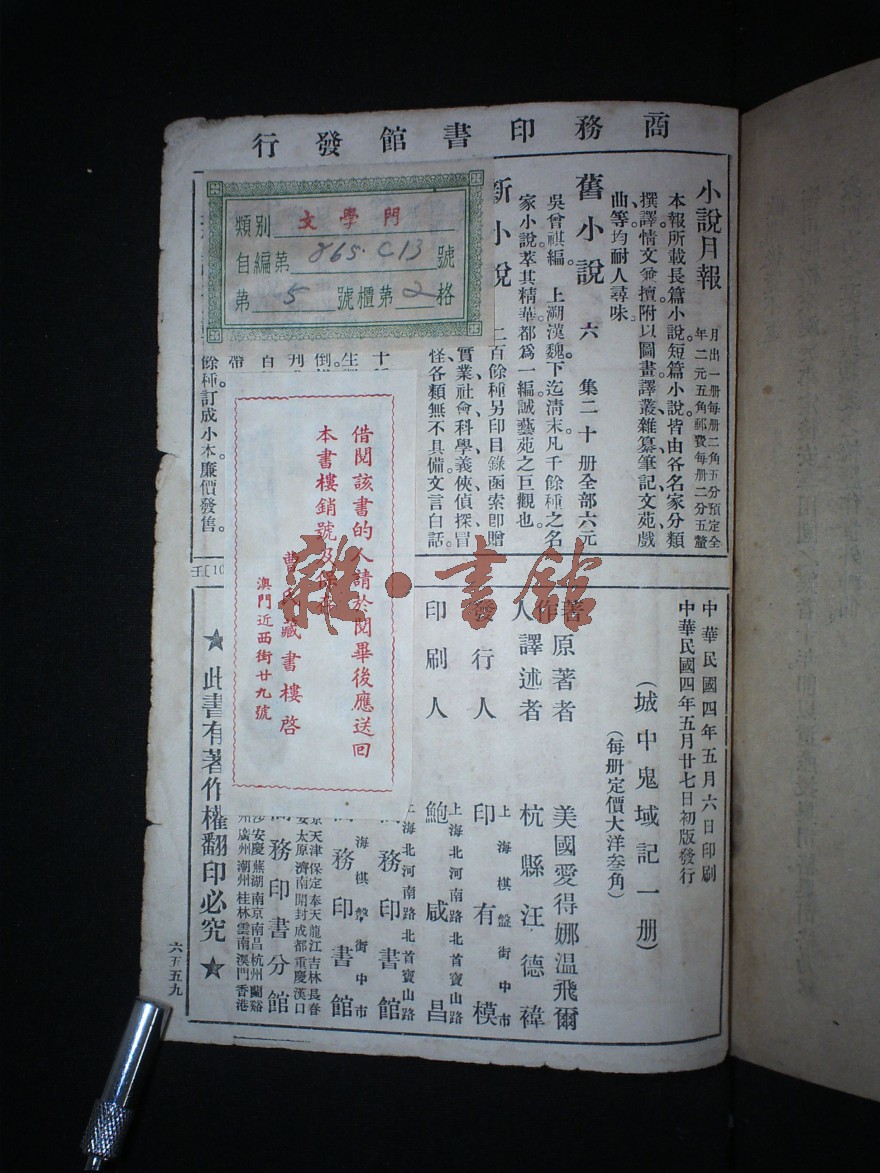 商務印書館發行
小說月報
月出一册每册二角五分預定全
年二元五角郵費每册二分五釐
本報所載長篇小說短篇小說皆由各名家分類
撰譯情文兼擅附以圖畫譯叢雜纂筆記文苑戲
曲等均耐人尋味
舊小說 六集二十册全部六元
吳曾祺編。上溯漢魏。下迄清末。凡千餘種之名
家小說。萃其精華。都爲一編。誠藝苑之巨觀也。
新小說
二百餘種另印目錄函索即贈
實業、社會、科學、義俠、偵探、冒
怪各類無不具備文言白話。
餘種。訂成小本。廉價發售。
類別 文學門
自編第 865.C13 號
第 5 號櫃第 2 格
借閱該書的人請於閱畢後應送回
本書樓銷號及保存
曹氏藏書樓啓
澳門近西街廿九號
雜·書館
中華民國四年五月六日印刷
中華民國四年五月廿七日初版發行
(城中鬼域記一册)
(每册定價大洋叁角)
著作人
原著者 美國愛得娜溫飛爾
譯述者 杭縣汪德禕
發行人 印有模
上海棋盤街中市
印刷人 鮑咸昌
上海北河南路北首寶山路
上海北河南路北首寶山路
務印書館
海棋盤街中市
務印書館
京天津保定奉天龍江吉林長春
太原濟南開封成都重慶漢口
務印書分館
安慶蕪湖南京南昌杭州蘭谿
廣州潮州桂林雲南澳門香港
★此書有著作權翻印必究★
六五五九